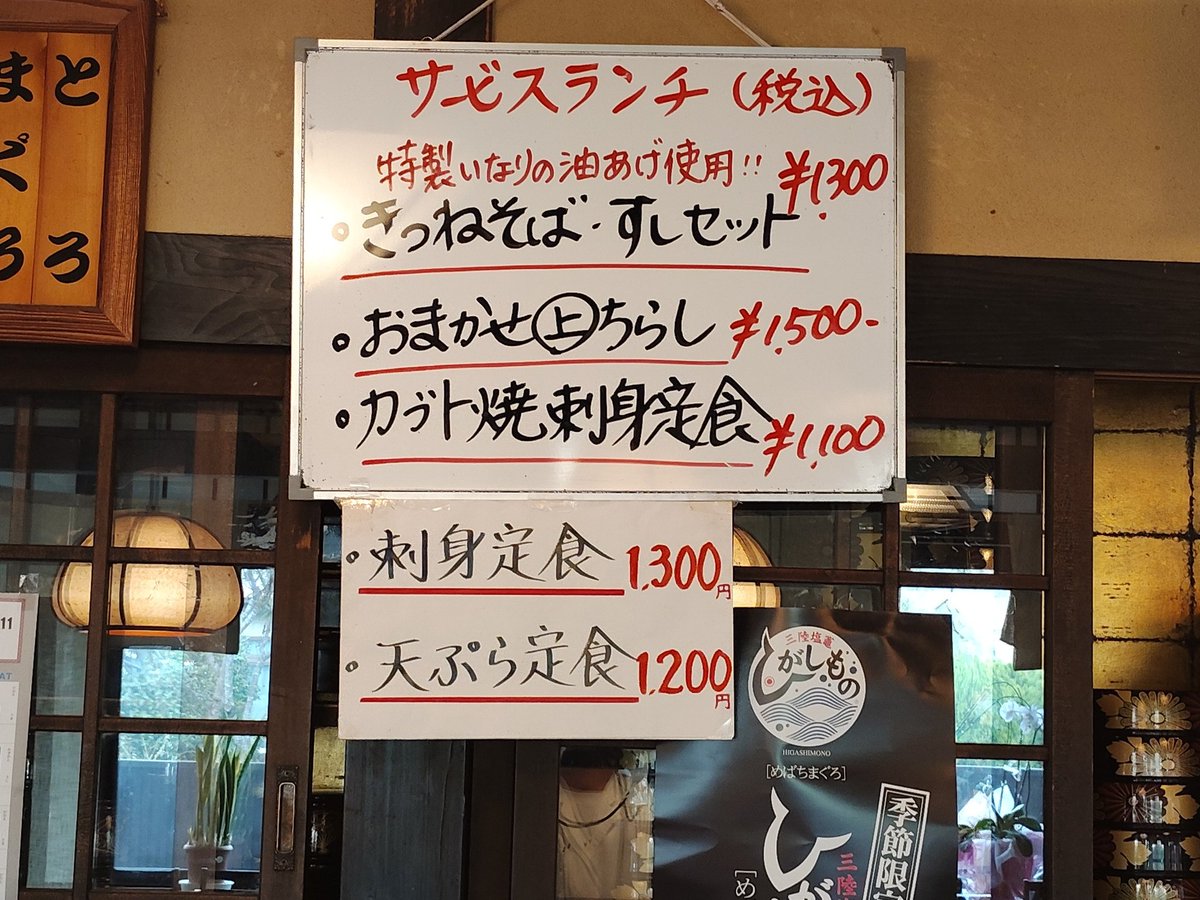 サービスランチ(税込)
特製いなりの油あげ使用!!
¥1,300
きつねそば・すしセット
おまかせ上ちらし ¥1,500-
カブト焼刺身定食 ¥1,100
刺身定食 1,300円
天ぷら定食 1,200円
まと
ろ
11
AT
三陸塩竈
ひがしもの
HIGASHIMONO
[めばちまぐろ]
ひが
三陸
[め
季節限定